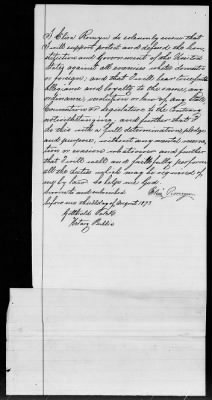 I Eliu Romyn do solemnly swear that
I will support protect and defend the Con-
stitution and Government of the United
States against all enemies while domestic
or foreign; and that I will bear true faith
allegiance and loyalty to the same; any
ordinance resolution or law of any State
Convention or Legislature to the contrary
notwithstanding, and further that I
do this with a full determination pledge
and purpose, without any mental reserva-
tion or evasion whatsoever and further
that I will well and faithfully perform
all the duties which may be required of
me by law so help me God
Sworn to and subscribed
before me this day of August 1873
Notary Public